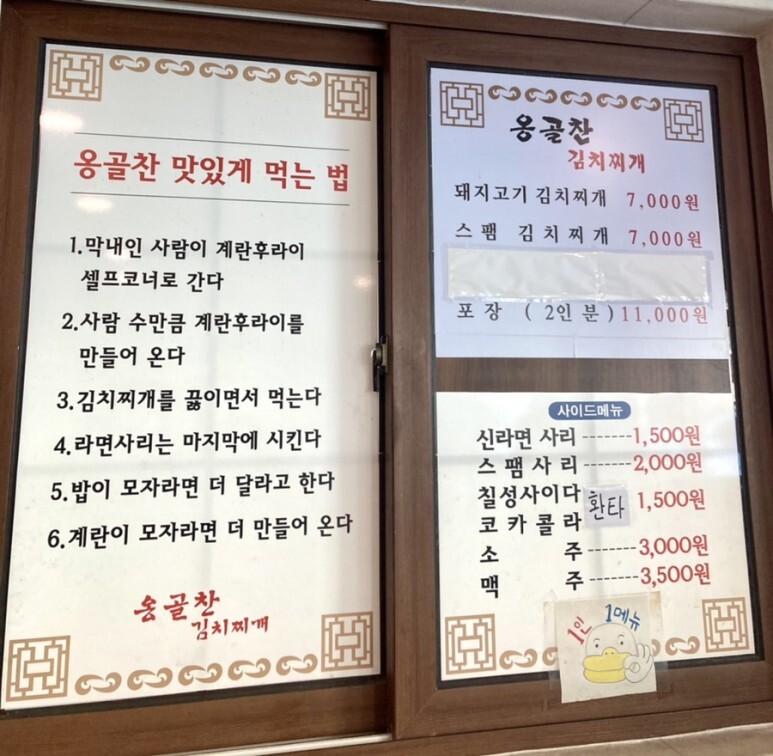 옹골찬 맛있게 먹는 법
1.막내인 사람이 계란후라이
셀프코너로 간다
2.사람 수만큼 계란후라이를
만들어 온다
3.김치찌개를 끓이면서 먹는다
4.라면사리는 마지막에 시킨다
5.밥이 모자라면 더 달라고 한다
6.계란이 모자라면 더 만들어 온다
옹골찬
김치찌개
옹골찬
김치찌개
돼지고기 김치찌개 7,000원
스팸 김치찌개 7,000원
포장 (2인분) 11,000원
사이드메뉴
신라면 사리 -------1,500원
스팸사리 -------2,000원
칠성사이다
코카콜라 환타 1,500원
소 주 -------3,000원
맥 주 -------3,500원
1인 1메뉴